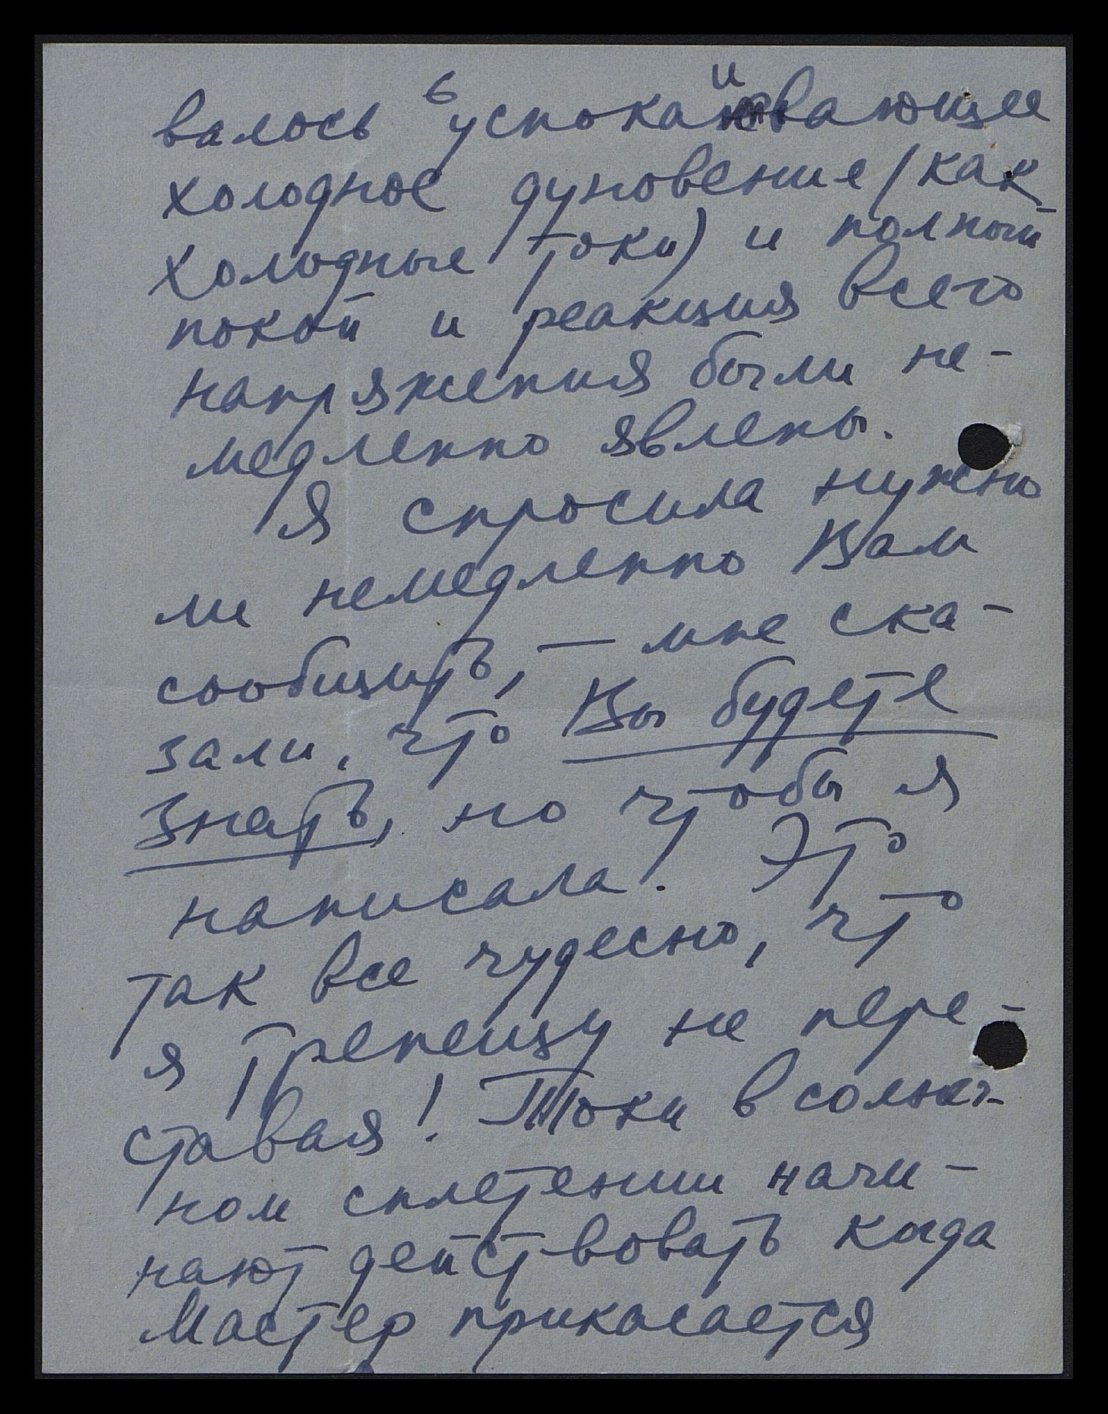 валось успокаивающее
холодное дуновение (как
холодные токи) и полный
покой и реакция всего
напряжения были не-
медленно явлены.
Я спросила нужно
ли немедленно Вам
сообщить, — мне ска-
зали, что Вы будете
знать, но чтобы я
написала! Это
так все чудесно, что
я трепещу не пере-
ставая! Токи в солнеч-
ном сплетении начи-
нают действовать когда
Мастер прикасается